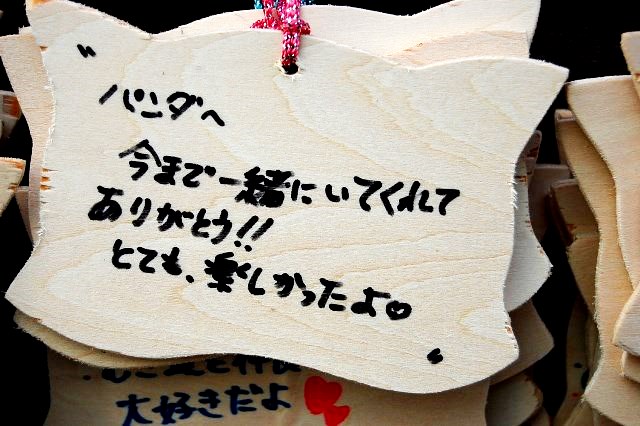 "
パンダへ
今まで一緒にいてくれて
ありがとう!!
とても、楽しかったよ♡
"
大好きだよ